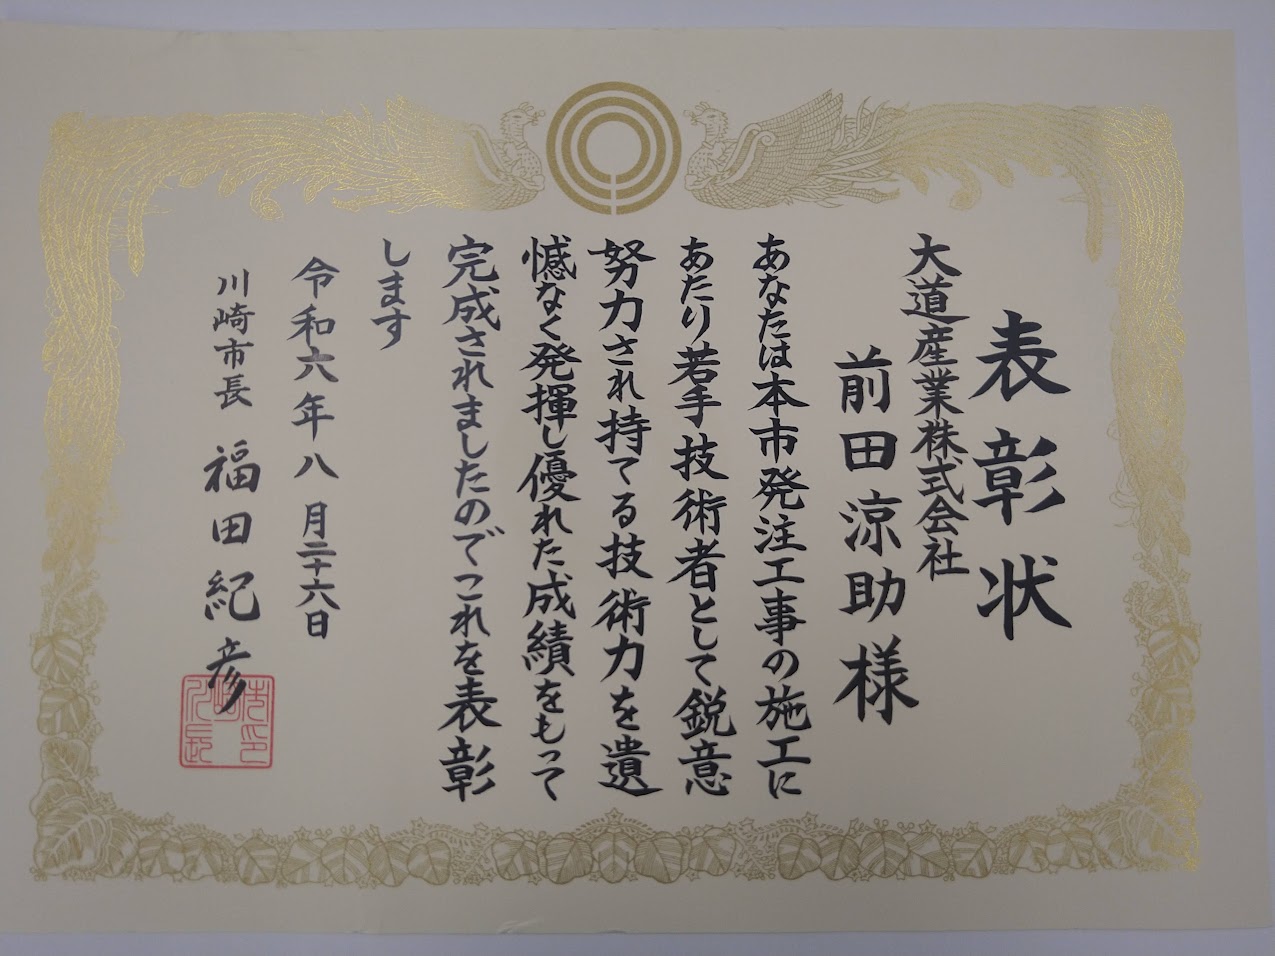 表彰状
大道産業株式会社
前田涼助様
あなたは本市発注工事の施工に
あたり若手技術者として鋭意
努力され持てる技術力を遺
憾なく発揮し優れた成績をもって
完成されましたのでこれを表彰
します
令和六年八月二十六日
川崎市長 福田紀彦